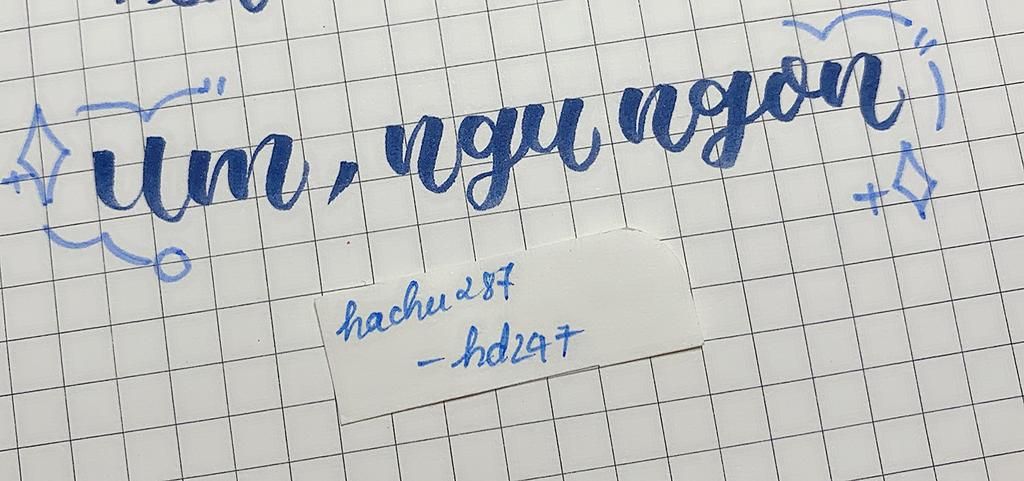 um, ngu ngon
hachu287
-hd247